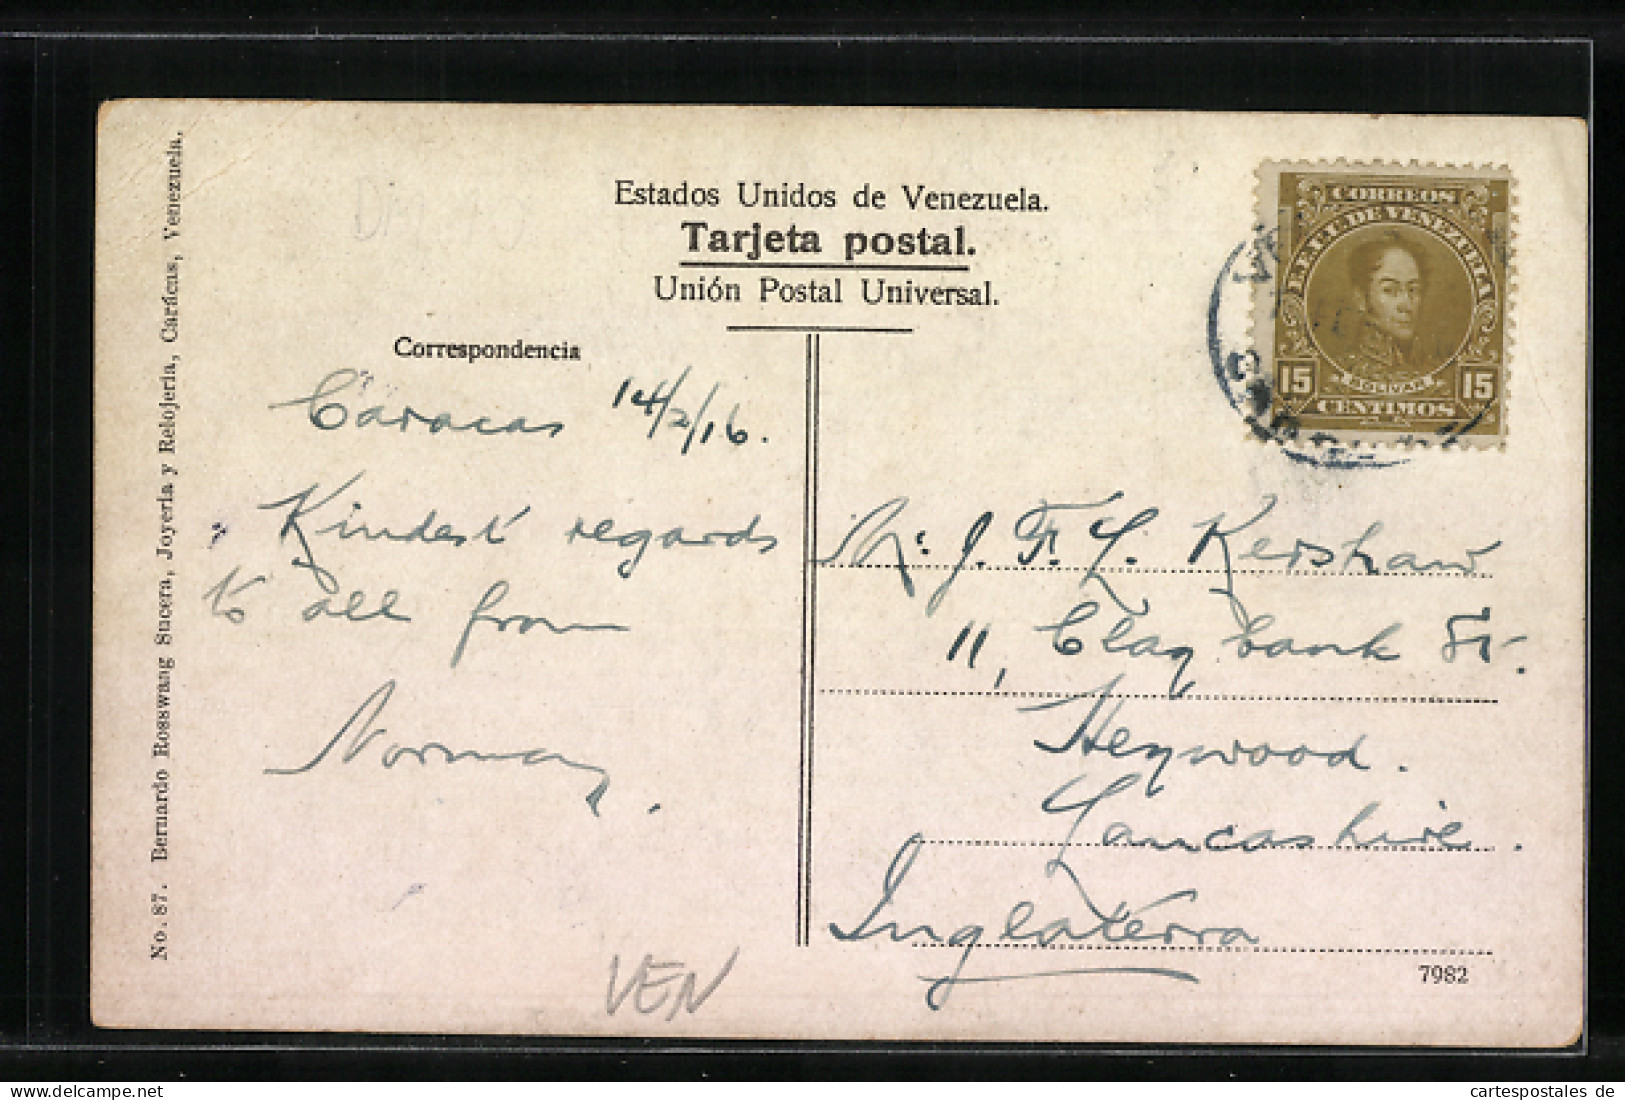 Estados Unidos de Venezuela.
Tarjeta postal.
Unión Postal Universal.
Correspondencia
Caracas 14/2/16.
Kindest regards
to all from
Norman.
CORREOS
EE.UU. DE VENEZUELA
BOLIVAR
15 15
CENTIMOS
Mr. J. F. L. Kershaw
11, Clay bank St.
Heywood.
Lancashire.
Inglaterra
7982
VEN
No. 87. Bernardo Rosswang Sucera, Joyería y Relojería, Carácas, Venezuela.
delcampe.net
cartespostales de